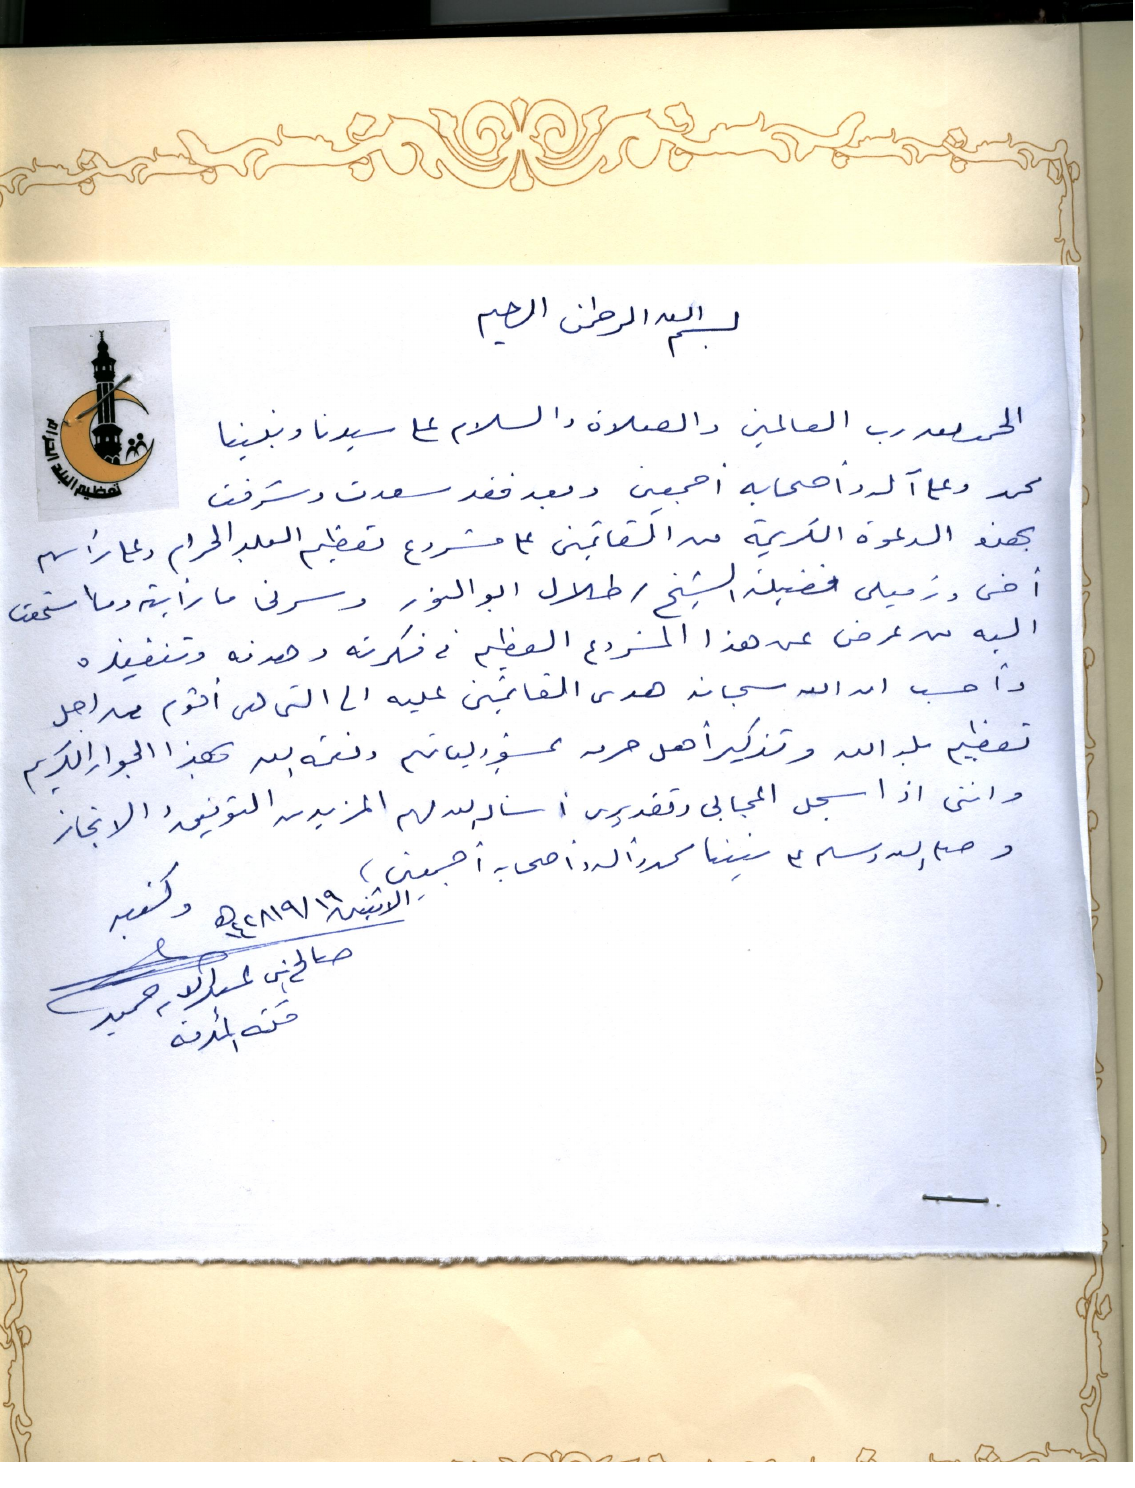 بسم الله الرحمن الرحيم
تعظيم البلد الحرام
الحمد لله رب العالمين والصلاة والسلام على سيدنا ونبينا
محمد وعلى آله وأصحابه أجمعين وبعد فقد سعدت وشرفت
بهذه الدعوة الكريمة من القائمين على مشروع تعظيم البلد الحرام وعلى رأسهم
أخي وزميلي فضيلة الشيخ / طلال ابو النور وسرني ما رأيته وما استمعت
اليه من عرض عن هذا المشروع العظيم في فكرته وهدفه وتنفيذه
وأحسب ان الله سبحانه هدى القائمين عليه الى التي هي أقوم من اجل
تعظيم بلد الله وتذكير أهل حرمه بمسؤولياتهم ونعمة الله بهذا الجوار الكريم
وانني اذ اسجل اعجابي وتقديري أسأل الله لهم المزيد من التوفيق والانجاز
وصلى الله وسلم على نبينا محمد وآله وأصحابه أجمعين ،
وكتبه
الاثنين ١٩/٨/١٤٢٨هـ
صالح بن عبدالله بن حميد
مكة المكرمة